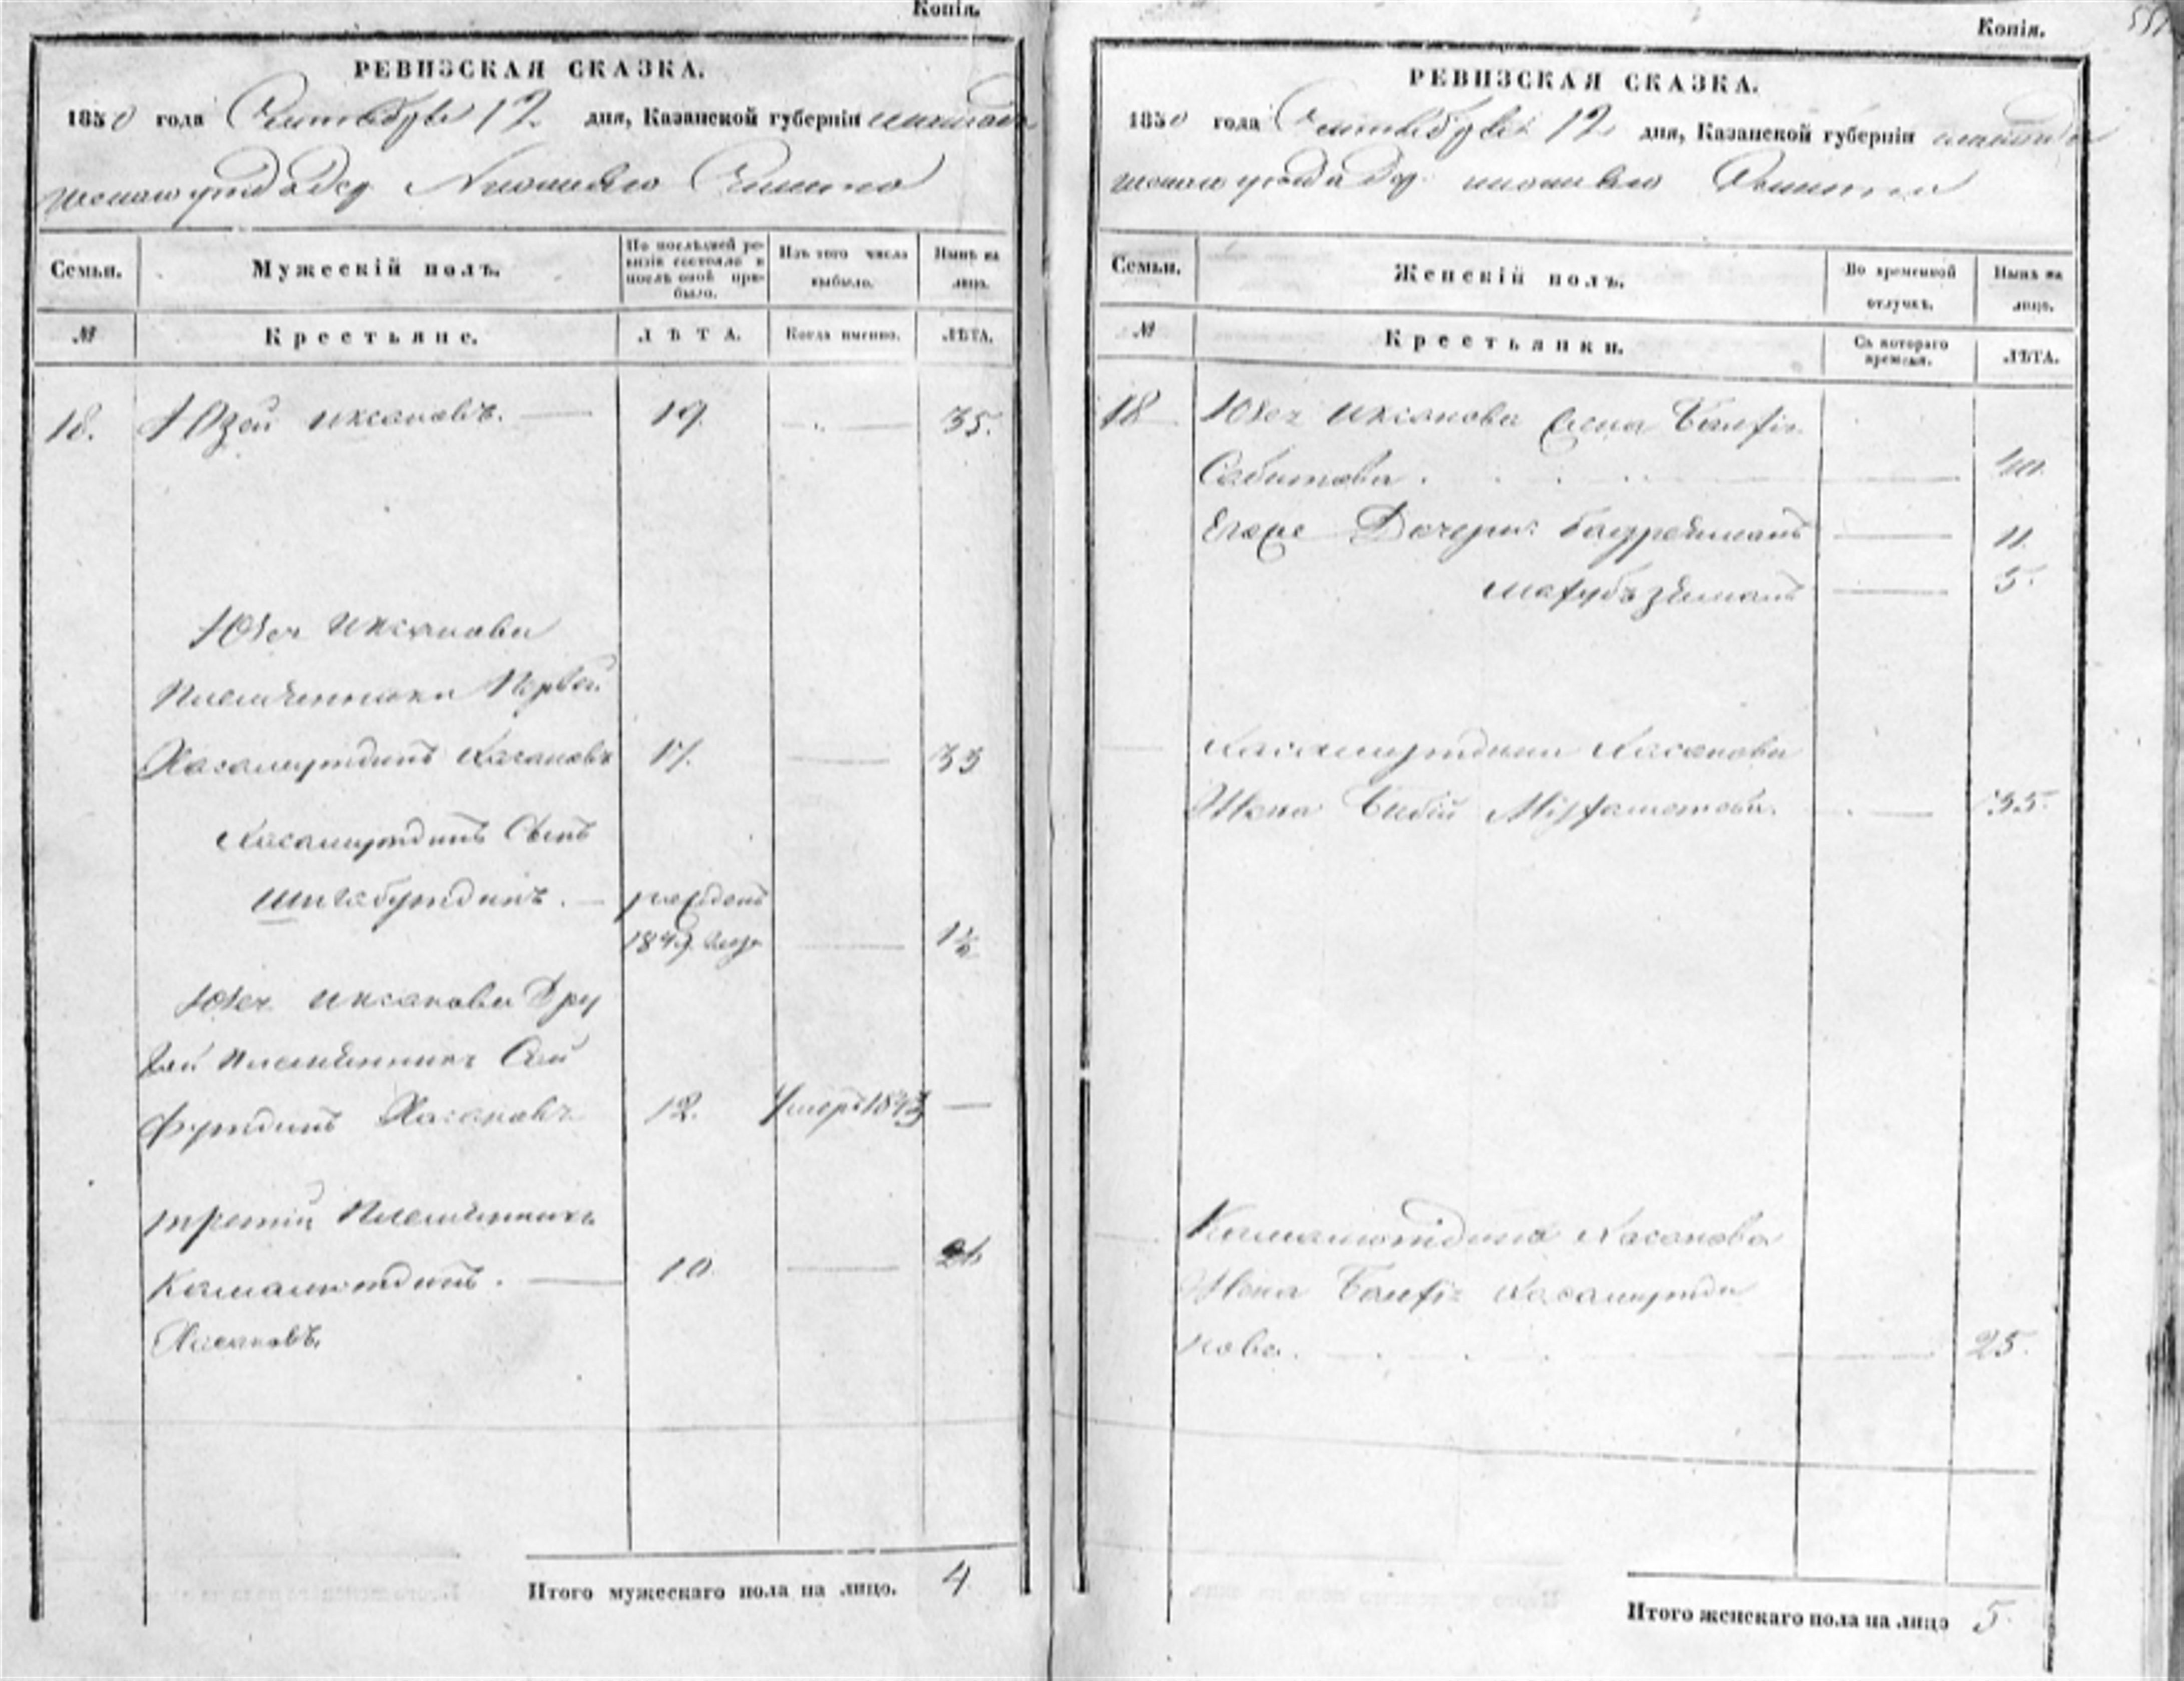 Копія.
РЕВИЗСКАЯ СКАЗКА.
1850 года Сентября 12 дня, Казанской губерніи
уѣзда дер.
Семьи. Мужескій полъ. По послѣдней ревизіи состояло и послѣ оной прибыло. Изъ того числа выбыло. Нынѣ на лицо.
№ Крестьяне. ЛѢТА. Когда именно. ЛѢТА.
18. Юзей Иксановъ. 19. 35.
Иксанова
Племянники Первой
Хасамутдинъ Хасановъ 17. 33
Хасамутдинъ Сынъ
Шигабутдинъ. рожденъ
1849. 1½
Иксанова Дру
гой Племянникъ Сей
футдинъ Хасановъ 12. Умеръ 1843 —
третій Племянникъ
Камалютдинъ. 10 26
Хасановъ.
Итого мужескаго пола на лицо. 4
Копія.
РЕВИЗСКАЯ СКАЗКА.
1850 года Сентября 12 дня, Казанской губерніи
уѣзда дер.
Семьи. Женскій полъ. Во временной отлучкѣ. Нынѣ на лицо.
№ Крестьянки. Съ котораго времени. ЛѢТА.
18 Иксанова Жена
Сабитова. 40.
Егоже Дочери: 11.
5.
Хасамутдина Хасанова
Жена Биби 35.
Камалютдина Хасанова
Жена Хасамутди
нова. 25.
Итого женскаго пола на лицо 5.